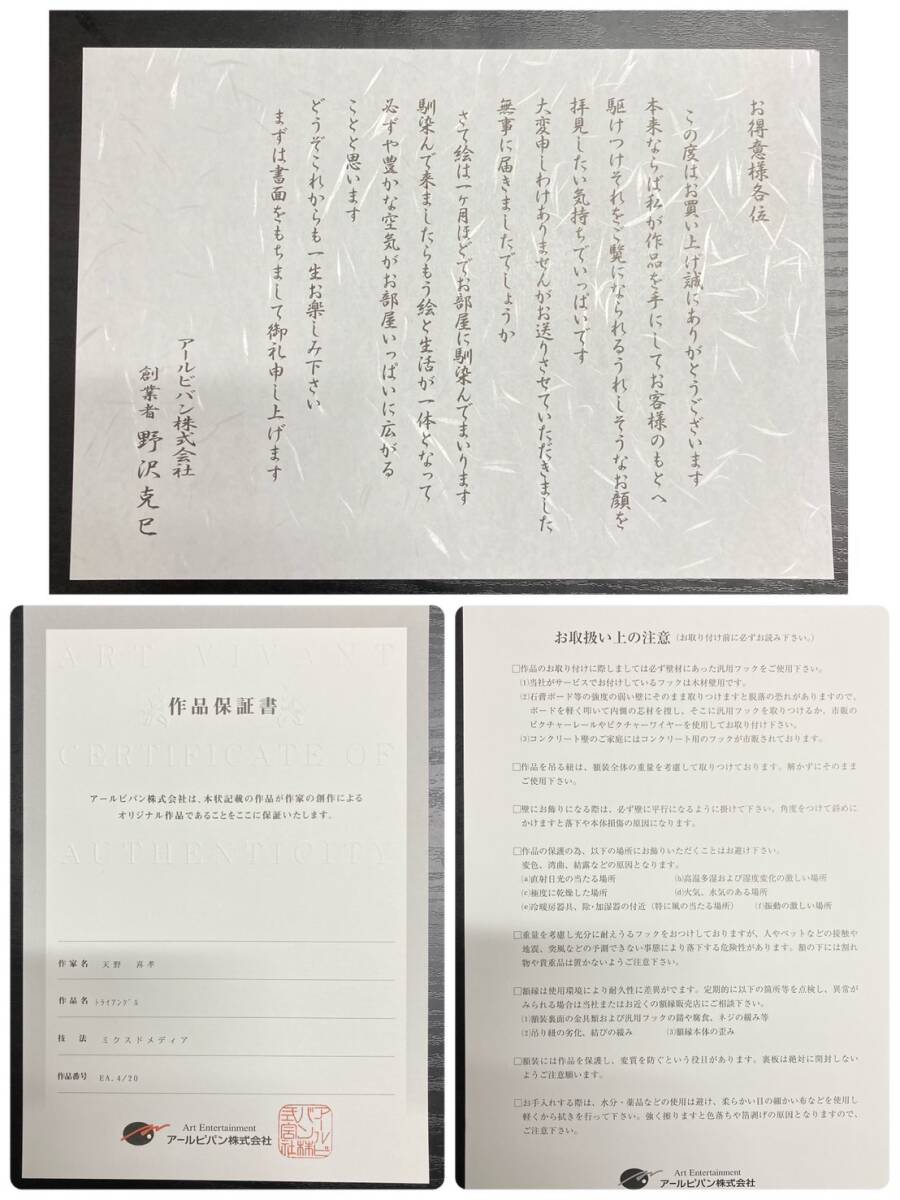 お得意様各位
この度はお買い上げ誠にありがとうございます
本来ならば私が作品を手にしてお客様のもとへ
駆けつけそれをご覧になられるうれしそうなお顔を
拝見したい気持ちでいっぱいです
大変申しわけありませんがお送りさせていただきました
無事に届きましたでしょうか
さて絵は一ヶ月ほどでお部屋に馴染んでまいります
馴染んで来ましたらもう絵と生活が一体となって
必ずや豊かな空気がお部屋いっぱいに広がる
ことと思います
どうぞこれからも一生お楽しみ下さい
まずは書面をもちまして御礼申し上げます
アールビバン株式会社
創業者 野沢克巳
ART VIVANT
作品保証書
CERTIFICATE OF
アールビバン株式会社は、本状記載の作品が作家の創作による
オリジナル作品であることをここに保証いたします。
AUTHENTICITY
作家名 天野 喜孝
作品名 トライアングル
技法 ミクスドメディア
作品番号 EA.4/20
Art Entertainment
アールビバン株式会社
アールビバン株式会社
お取扱い上の注意（お取り付け前に必ずお読み下さい。）
□作品のお取り付けに際しましては必ず壁材にあった汎用フックをご使用下さい。
(1)当社がサービスでお付けしているフックは木材壁用です。
(2)石膏ボード等の強度の弱い壁にそのまま取りつけますと脱落の恐れがありますので、
ボードを軽く叩いて内側の芯材を捜し、そこに汎用フックを取りつけるか、市販の
ピクチャーレールやピクチャーワイヤーを使用してお取り付け下さい。
(3)コンクリート壁のご家庭にはコンクリート用のフックが市販されております。
□作品を吊る紐は、額装全体の重量を考慮して取りつけております。解かずにそのまま
ご使用下さい。
□壁にお飾りになる際は、必ず壁に平行になるように掛けて下さい。角度をつけて斜めに
かけますと落下や本体損傷の原因になります。
□作品の保護の為、以下の場所にお飾りいただくことはお避け下さい。
変色、湾曲、結露などの原因となります。
(a)直射日光の当たる場所 (b)高温多湿および湿度変化の激しい場所
(c)極度に乾燥した場所 (d)火気、水気のある場所
(e)冷暖房器具、除・加湿器の付近（特に風の当たる場所） (f)振動の激しい場所
□重量を考慮し充分に耐えうるフックをおつけしておりますが、人やペットなどの接触や
地震、突風などの予測できない事態により落下する危険性があります。額の下には割れ
物や貴重品は置かないようご注意下さい。
□額縁は使用環境により耐久性に差異がでます。定期的に以下の箇所等を点検し、異常が
みられる場合は当社またはお近くの額縁販売店にご相談下さい。
(1)額装裏面の金具類および汎用フックの錆や腐食、ネジの緩み等
(2)吊り紐の劣化、結びの緩み (3)額縁本体の歪み
□額装には作品を保護し、変質を防ぐという役目があります。裏板は絶対に開封しない
ようご注意願います。
□お手入れする際は、水分・薬品などの使用は避け、柔らかい目の細かい布などを使用し
軽くから拭きを行って下さい。強く擦りますと色落ちや箔剥げの原因となりますので、
ご注意下さい。
Art Entertainment
アールビバン株式会社